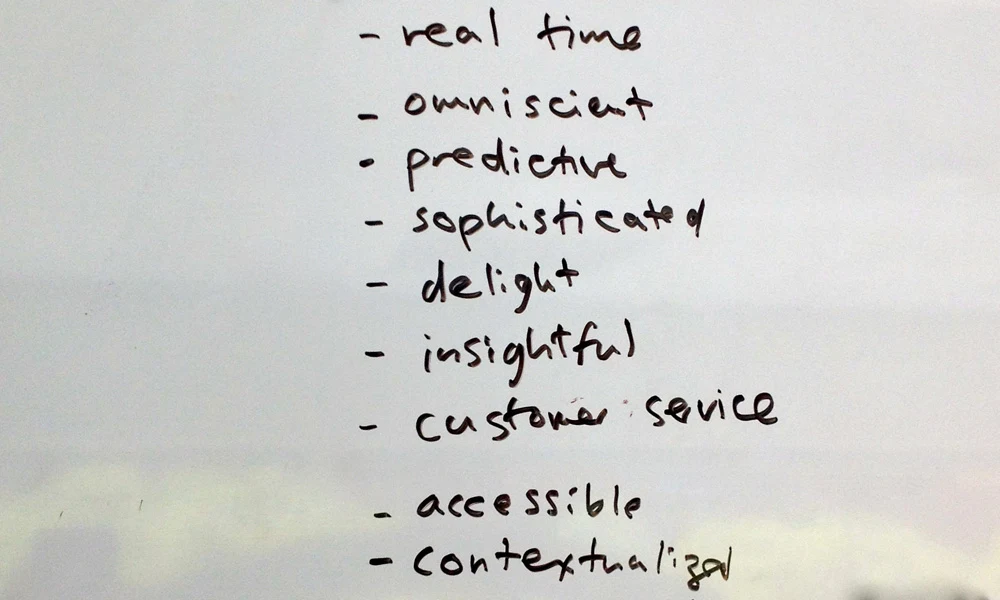 - real time
- omniscient
- predictive
- sophisticated
- delight
- insightful
- customer service
- accessible
- contextualized